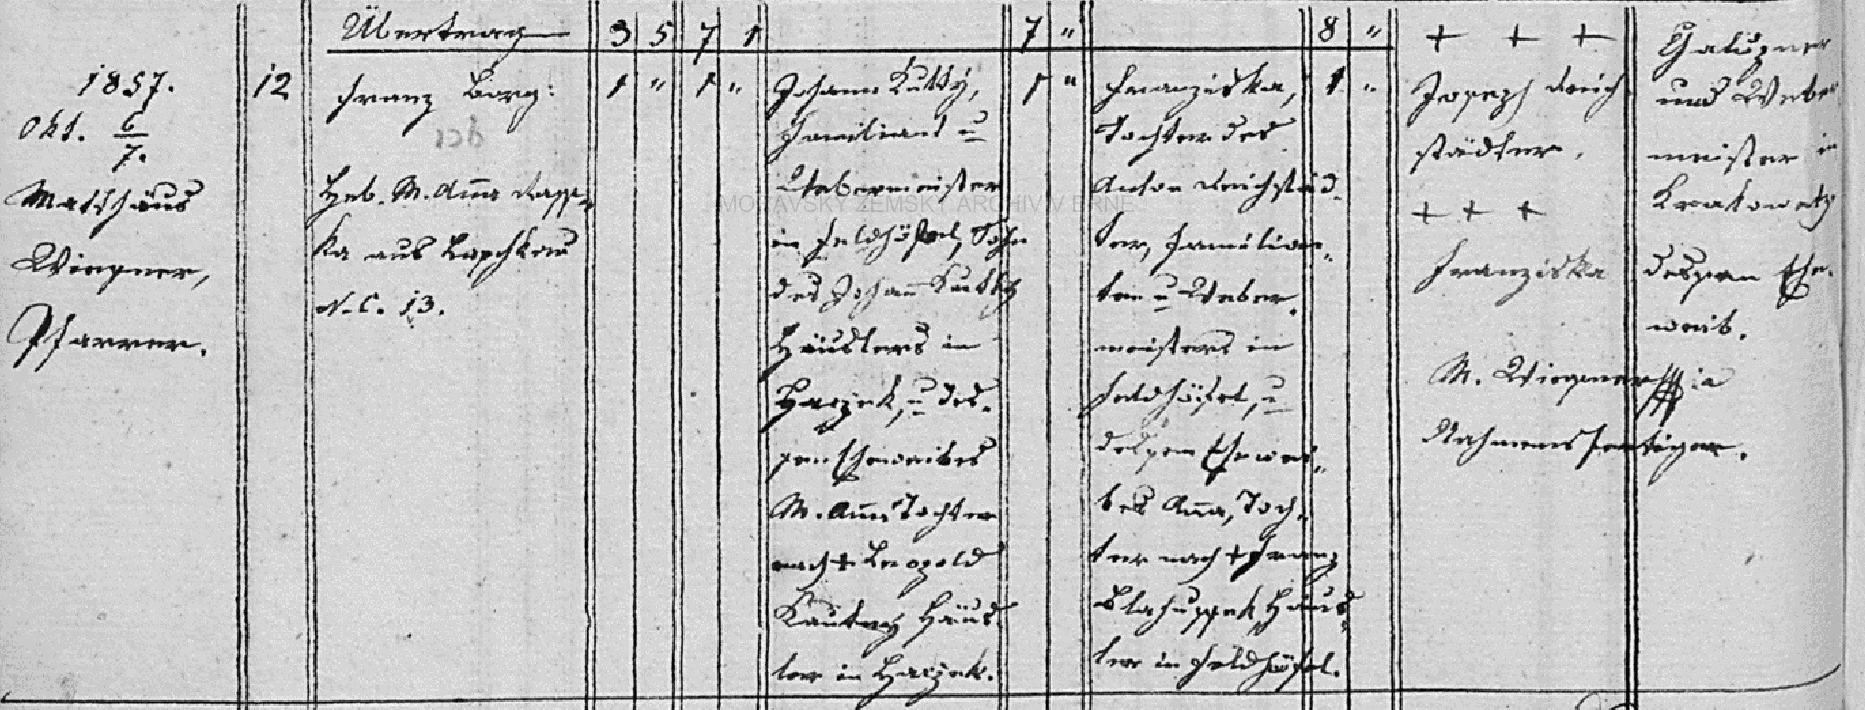 Übertrag 3 5 7 1 7 " 8 " + + +
1857.
Okt. 6/7.
Matthäus
Wiegner,
Pfarrer.
12
Franz Borg:
Heb. M. Anna
ka aus
N.C. 13.
1 " 1 "
Johann Kutty,
Familiant u
Webermeister
in Feldhöfel, Sohn
des Johann Kutty
Häuslers in
Hayek, u des-
sen Eheweibes
M. Anna Tochter
nach + Leopold
Kautny Häus-
ler in Hayek.
1 "
Franziska,
Tochter des
Anton Reichstäd-
ter, Familian-
ten u Weber-
meisters in
Feldhöfel, u
dessen Ehewei-
bes Anna, Toch-
ter nach + Franz
Häus-
ler in Feldhöfel.
1 "
Joseph Reich-
städter,
+ + +
Franziska
M. Wiegner in
Nahmensfertiger.
und Weber
meister in
Krakowetz
dessen Ehe-
weib.
MORAVSKÝ ZEMSKÝ ARCHIV V BRNĚ